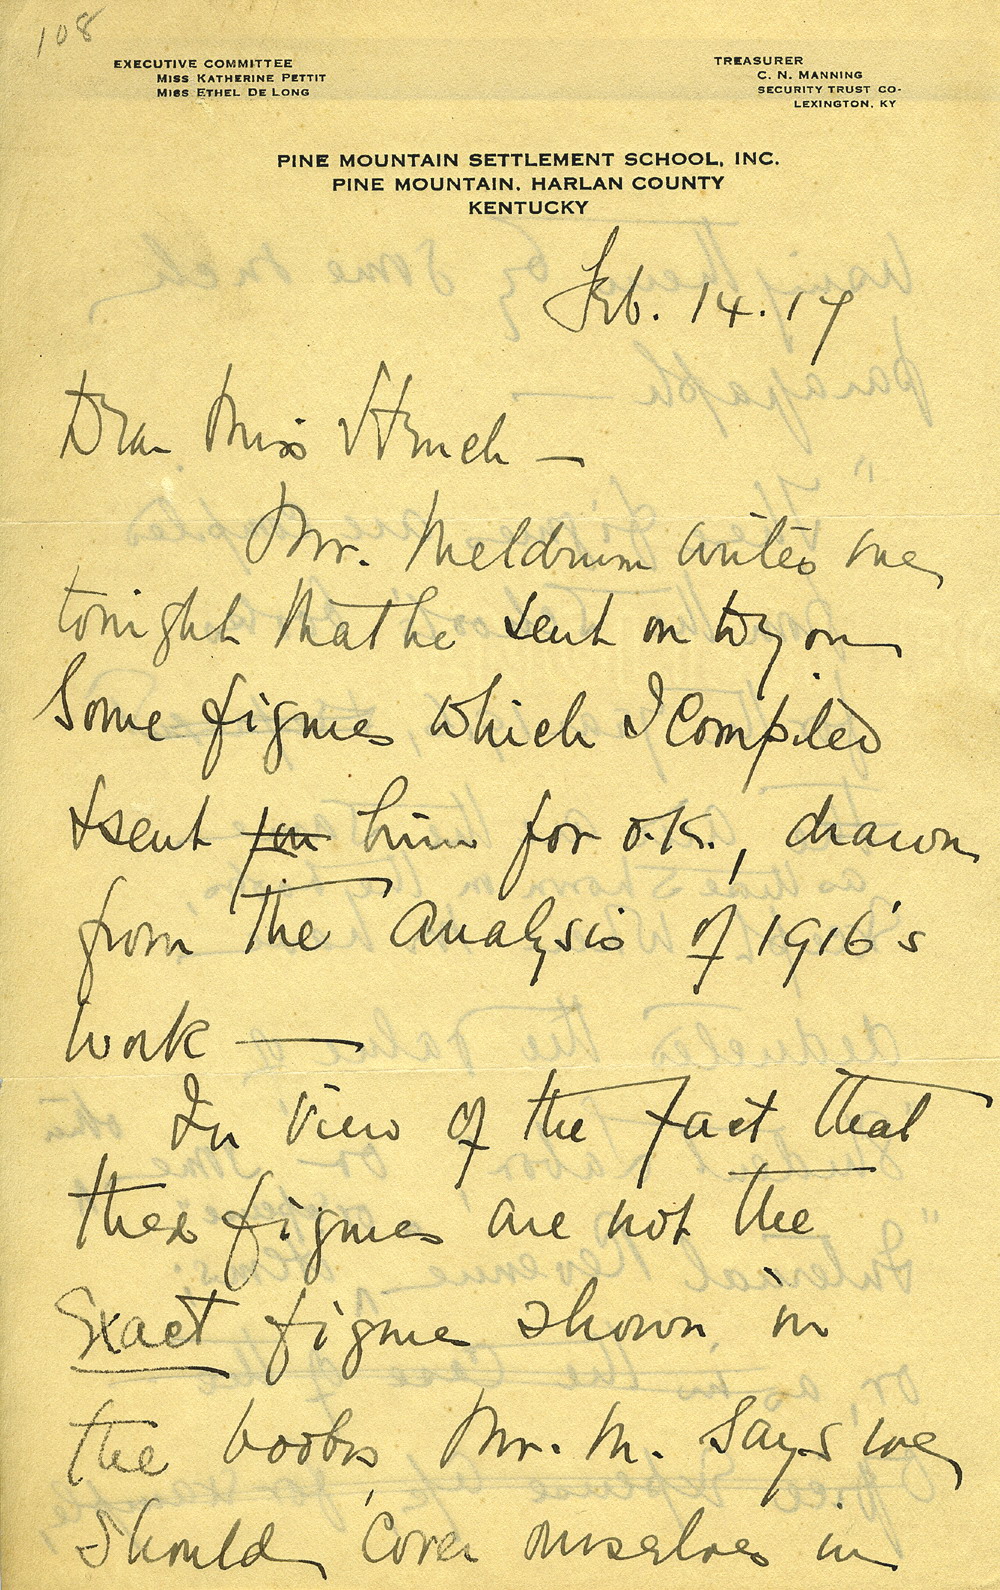 108
EXECUTIVE COMMITTEE
MISS KATHERINE PETTIT
MISS ETHEL DE LONG
TREASURER
C. N. MANNING
SECURITY TRUST CO.
LEXINGTON, KY
PINE MOUNTAIN SETTLEMENT SCHOOL, INC.
PINE MOUNTAIN, HARLAN COUNTY
KENTUCKY
Feb. 14. 17
Dear Miss Hench —
Mr. Meldrum writes me
tonight that he sent on to you
some figures which I compiled
& sent him for O.K., drawn
from the analysis of 1916's
work —
In view of the fact that
these figures are not the
exact figures shown in
the books, Mr. M. says we
should cover ourselves in